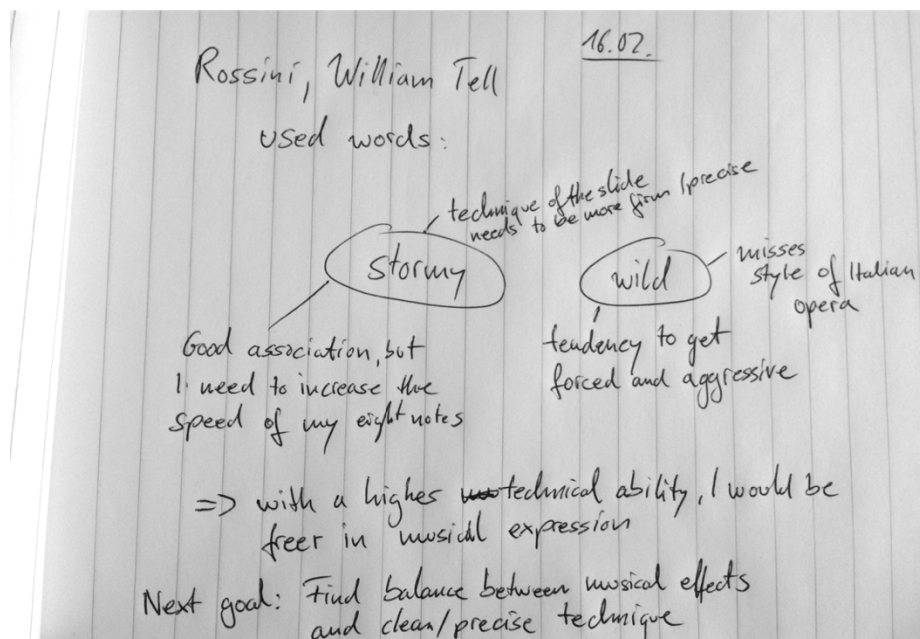 16.02.
Rossini, William Tell
used words:
technique of the slide
needs to be more firm/precise
stormy
wild
misses
style of Italian
opera
Good association, but
I need to increase the
speed of my eight notes
tendency to get
forced and aggressive
=> with a higher technical ability, I would be
freer in musical expression
Next goal: Find balance between musical effects
and clean/precise technique